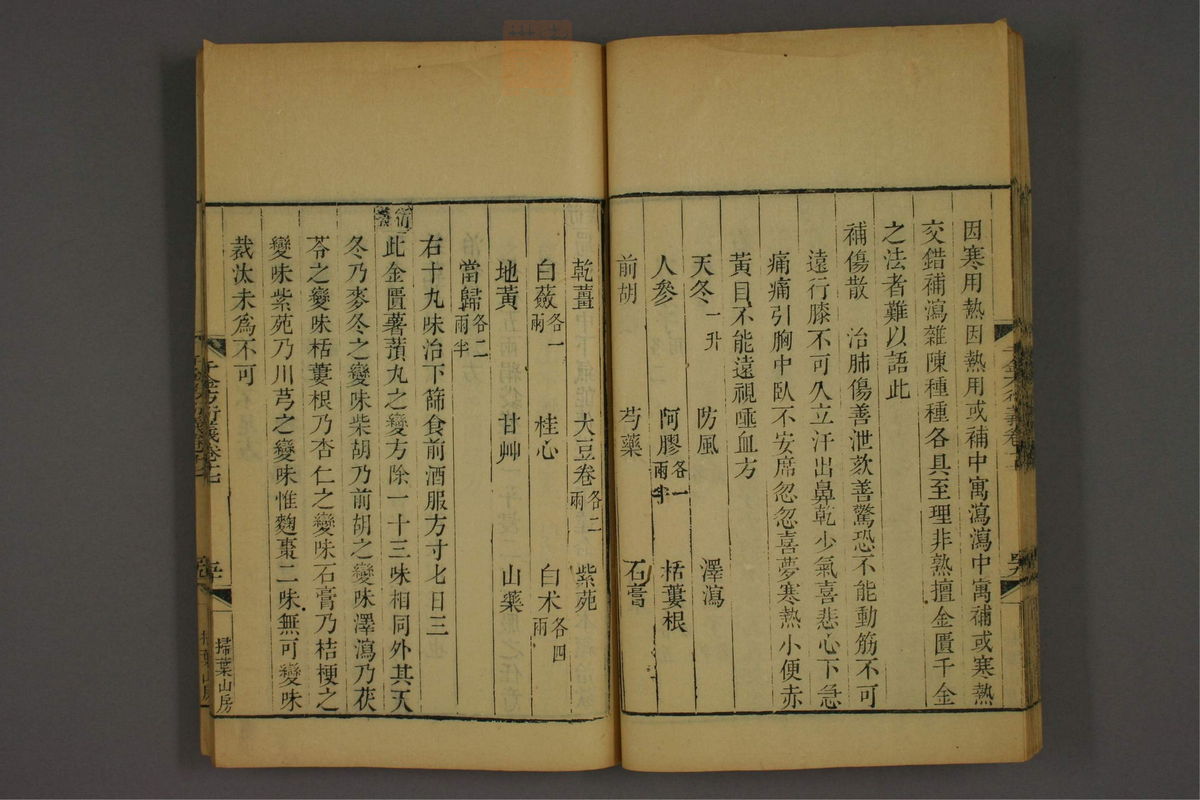 因寒用熱因熱用或補中寓瀉瀉中寓補或寒熱
交錯補瀉雜陳種種各具至理非熟擅金匱千金
之法者難以語此
補傷散　治肺傷善泄欬善驚恐不能動筋不可
遠行膝不可久立汗出鼻乾少氣喜悲心下急
痛痛引胸中臥不安席忽忽喜夢寒熱小便赤
黃目不能遠視唾血方
天冬一升　防風　澤瀉
人參　阿膠各一兩半　栝蔞根
前胡　芍藥　石膏
乾薑　大豆卷各二兩　紫苑
白蘞各一兩　桂心　白术各四兩
地黃　甘艸　山藥
當歸各二兩半
右十九味治下篩食前酒服方寸匕日三
衍義
此金匱薯蕷丸之變方除一十三味相同外其天
冬乃麥冬之變味柴胡乃前胡之變味澤瀉乃茯
苓之變味栝蔞根乃杏仁之變味石膏乃桔梗之
變味紫苑乃川芎之變味惟麴棗二味無可變味
裁汰未為不可
千金方衍義卷十七
掃葉山房